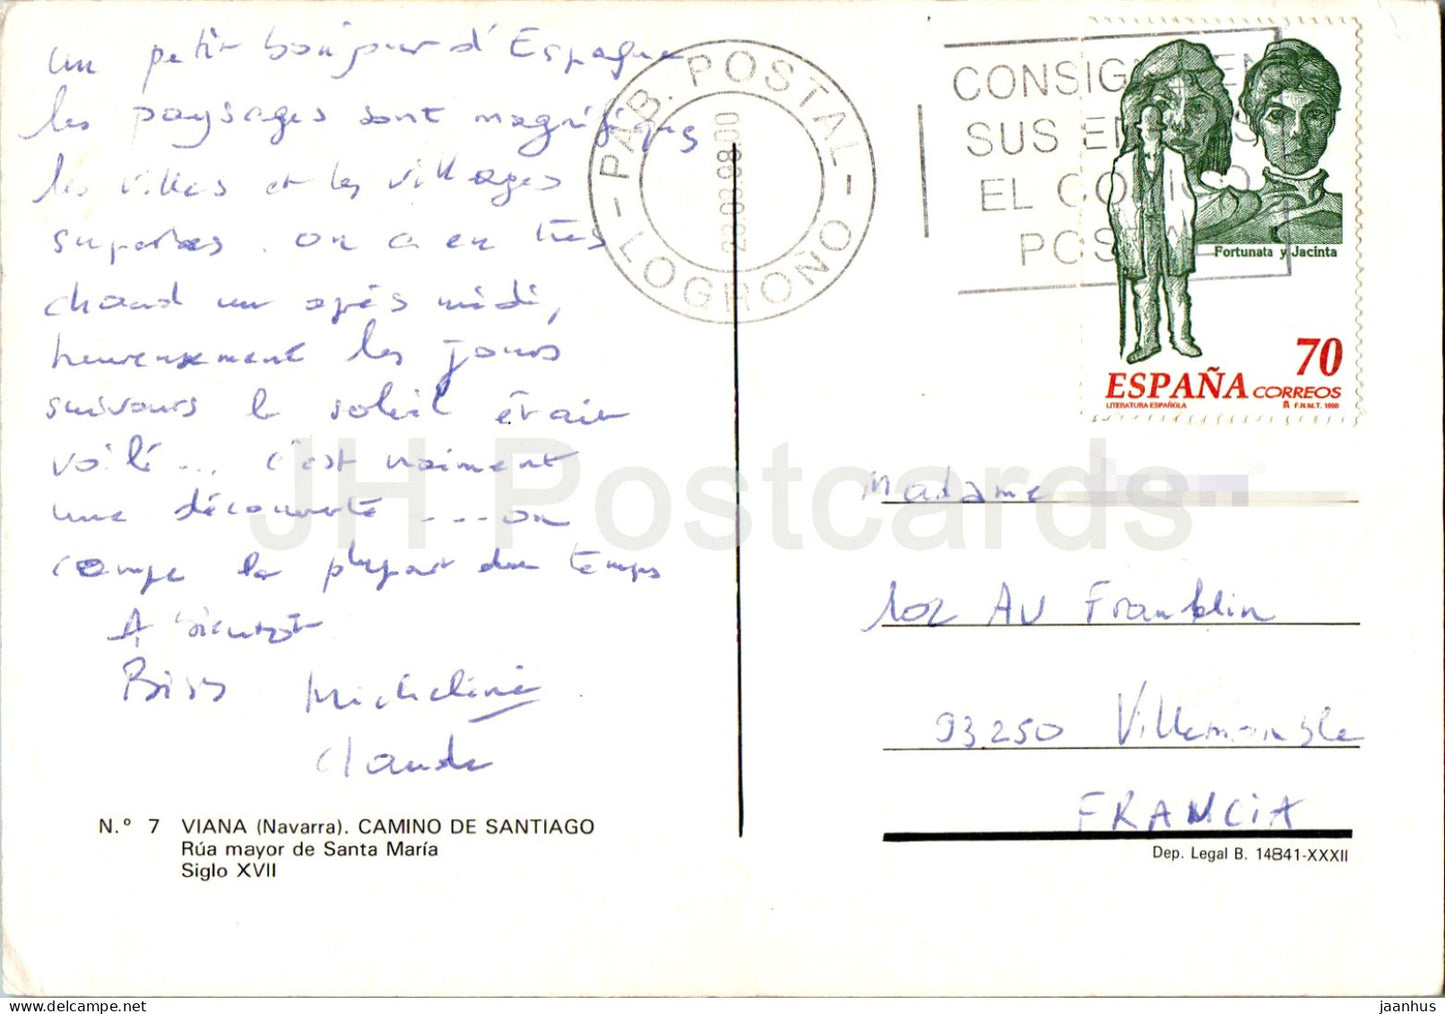 un petit bonjour d'Espagne
les paysages sont magnifiques
les villes et les villages
superbes. on a eu très
chaud un après midi,
heureusement les jours
suivants le soleil était
voilé... c'est vraiment
une découverte ... on
campe la plupart du temps
A bientôt
Bises Micheline
Claude
N.º 7 VIANA (Navarra). CAMINO DE SANTIAGO
Rúa mayor de Santa María
Siglo XVII
PAB. POSTAL
LOGROÑO
CONSIGNEN
SUS
EL CODIGO
POSTAL
Fortunata y Jacinta
70
ESPAÑA CORREOS
LITERATURA ESPAÑOLA F.N.M.T. 1998
Madame
102 AV Franklin
93250 Villemomble
FRANCIA
Dep. Legal B. 14841-XXXII
JH Postcards
jaanhus